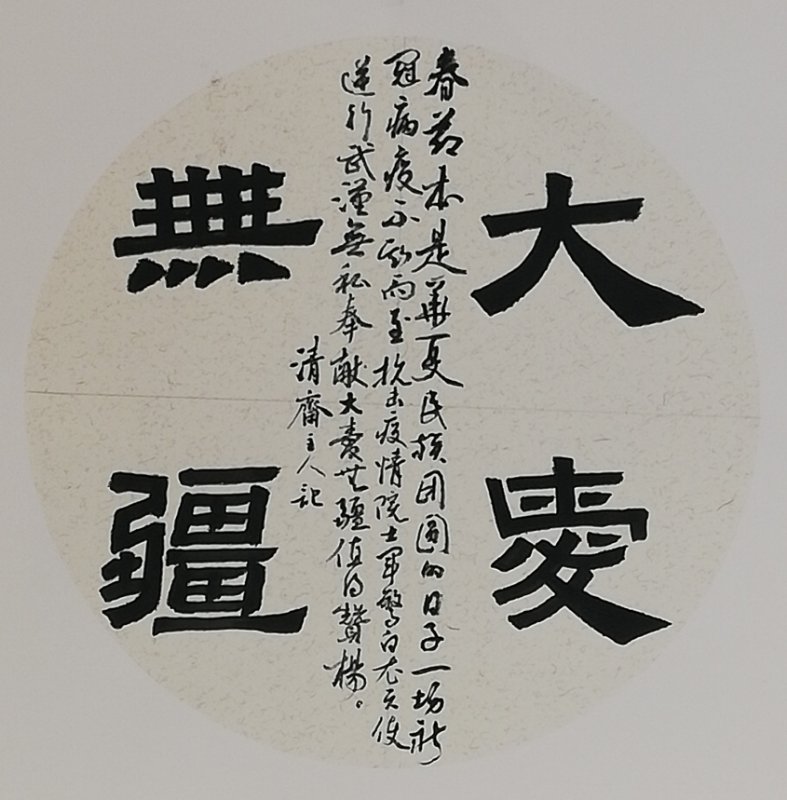 大愛
無疆
春莭本是華夏民族团圓的日子一场新
冠病疫不期而至抗击疫情院士军警白衣天使
逆行武漢無私奉献大愛无疆值得贊楊。
清齋主人記